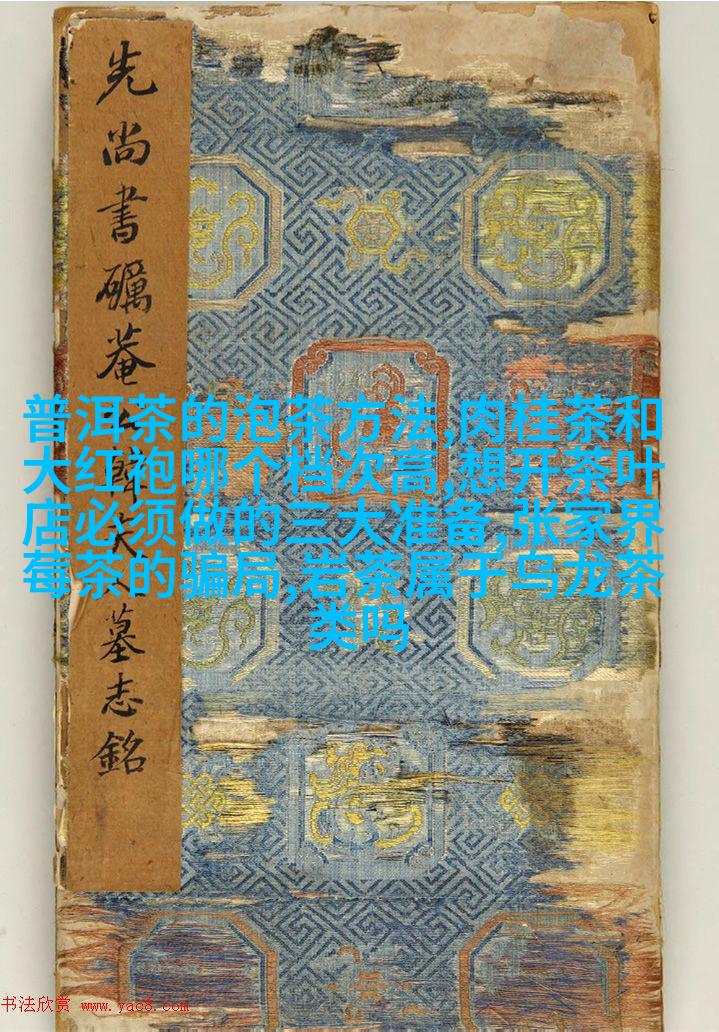 先尚書礪菴墓志銘
普洱茶的泡茶方法,肉桂茶和
大红袍哪个档次高,想开茶叶
店必须做的三大准备,张家界
莓茶的骗局,岩茶属于乌龙茶
类吗
书法欣赏 www.yac8.com